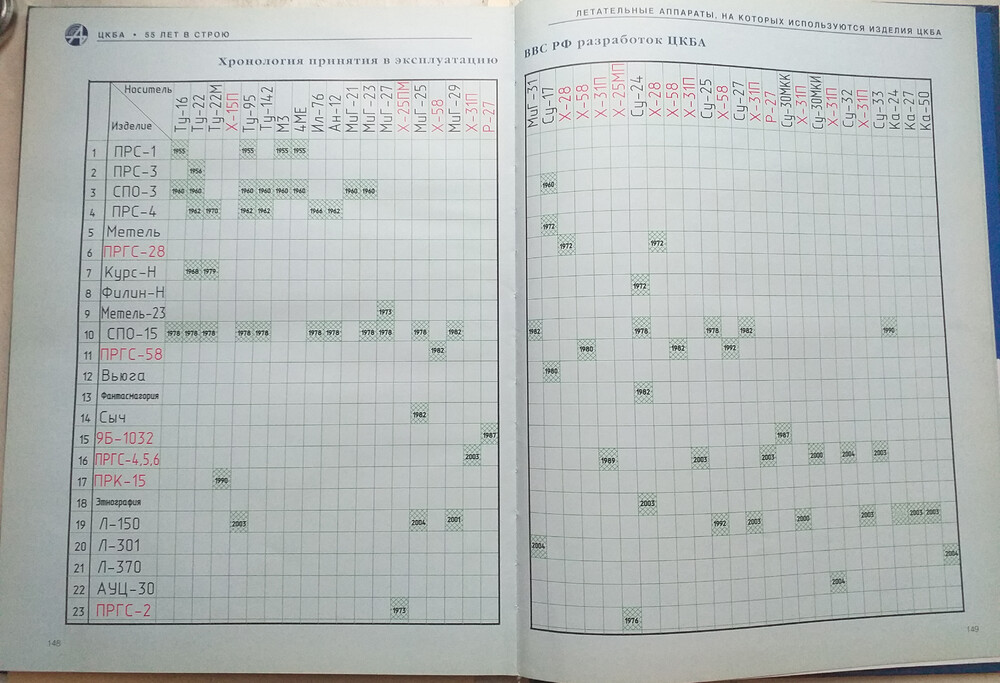 ЦКБА • 55 ЛЕТ В СТРОЮ
Хронология принятия в эксплуатацию
Носитель
Изделие
Ту-16
Ту-22
Ту-22М
Х-15П
Ту-95
Ту-142
М3
4МЕ
Ил-76
Ан-12
МиГ-21
МиГ-23
МиГ-27
Х-25ПМ
МиГ-25
Х-58
МиГ-29
Х-31П
Р-27
1 ПРС-1 1955 1955 1955 1955
2 ПРС-3 1956
3 СПО-3 1960 1960 1960 1960 1960 1960 1960 1960
4 ПРС-4 1962 1970 1962 1962 1966 1962
5 Метель
6 ПРГС-28
7 Курс-Н 1968 1979
8 Филин-Н
9 Метель-23 1973
10 СПО-15 1978 1978 1978 1978 1978 1978 1978 1978 1978 1978 1982
11 ПРГС-58 1982
12 Вьюга
13 Фантасмагория
14 Сыч 1982
15 9Б-1032 1987
16 ПРГС-4,5,6 2003
17 ПРК-15 1990
18 Этнография
19 Л-150 2003 2004 2001
20 Л-301
21 Л-370
22 АУЦ-30
23 ПРГС-2 1973
148
ЛЕТАТЕЛЬНЫЕ АППАРАТЫ, НА КОТОРЫХ ИСПОЛЬЗУЮТСЯ ИЗДЕЛИЯ ЦКБА
ВВС РФ разработок ЦКБА
МиГ-31
Су-17
Х-28
Х-58
Х-31П
Х-25МП
Су-24
Х-28
Х-58
Х-31П
Су-25
Х-58
Су-27
Х-31П
Р-27
Су-30МКК
Х-31П
Су-30МКИ
Х-31П
Су-32
Х-31П
Су-33
Ка-24
Ка-27
Ка-50
1960
1972
1972 1972
1972
1982 1978 1978 1982 1990
1980 1982 1992
1980
1982
1987
1989 2003 2003 2000 2004 2003
2003
1992 2003 2000 2003 2003 2003
2004 2004
2004
1976
149